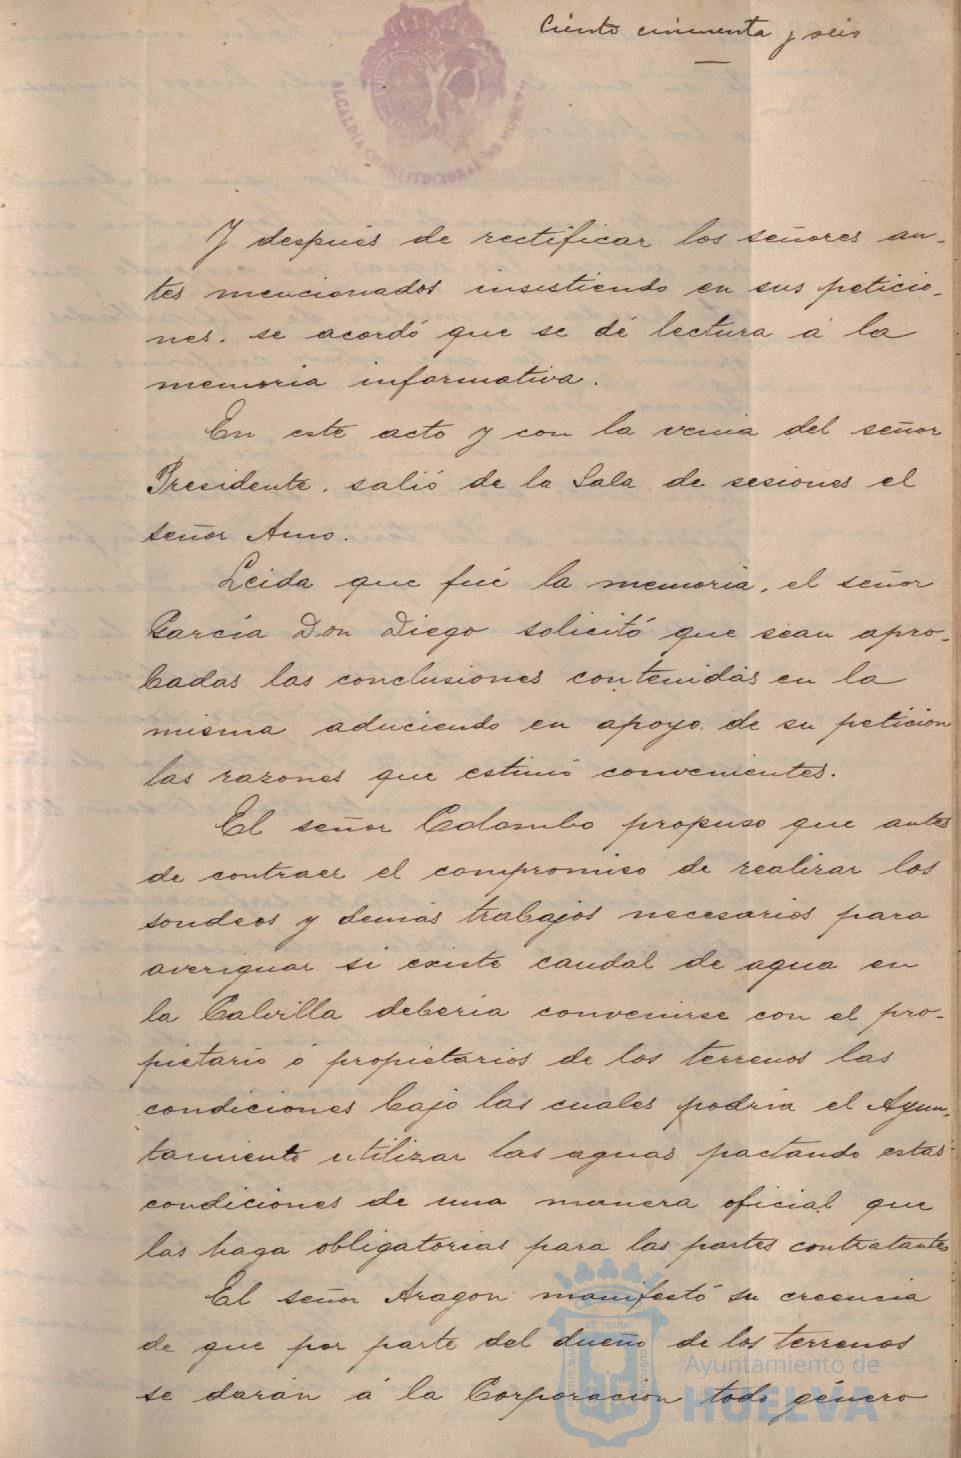 Ciento cincuenta y seis
ALCALDIA CONSTITUCIONAL DE HUELVA
Y después de rectificar los señores an-
tes mencionados insistiendo en sus peticio-
nes. se acordó que se dé lectura á la
memoria informativa.
En este acto y con la venia del señor
Presidente. salió de la Sala de sesiones el
señor Amo.
Leida que fué la memoria, el señor
García Don Diego solicitó que sean apro-
badas las conclusiones contenidas en la
misma aduciendo en apoyo de su peticion
las razones que estimó convenientes.
El señor Colombo propuso que antes
de contraer el compromiso de realizar los
sondeos y demás trabajos necesarios para
averiguar si existe caudal de agua en
la Calvilla deberia convenirse con el pro-
pietario ó propietarios de los terrenos las
condiciones bajo las cuales podria el Ayun-
tamiento utilizar las aguas pactando estas
condiciones de una manera oficial que
las haga obligatorias para las partes contratantes
El señor Aragon manifestó su creencia
de que por parte del dueño de los terrenos
se darán á la Corporación todo género
Ayuntamiento de
HUELVA